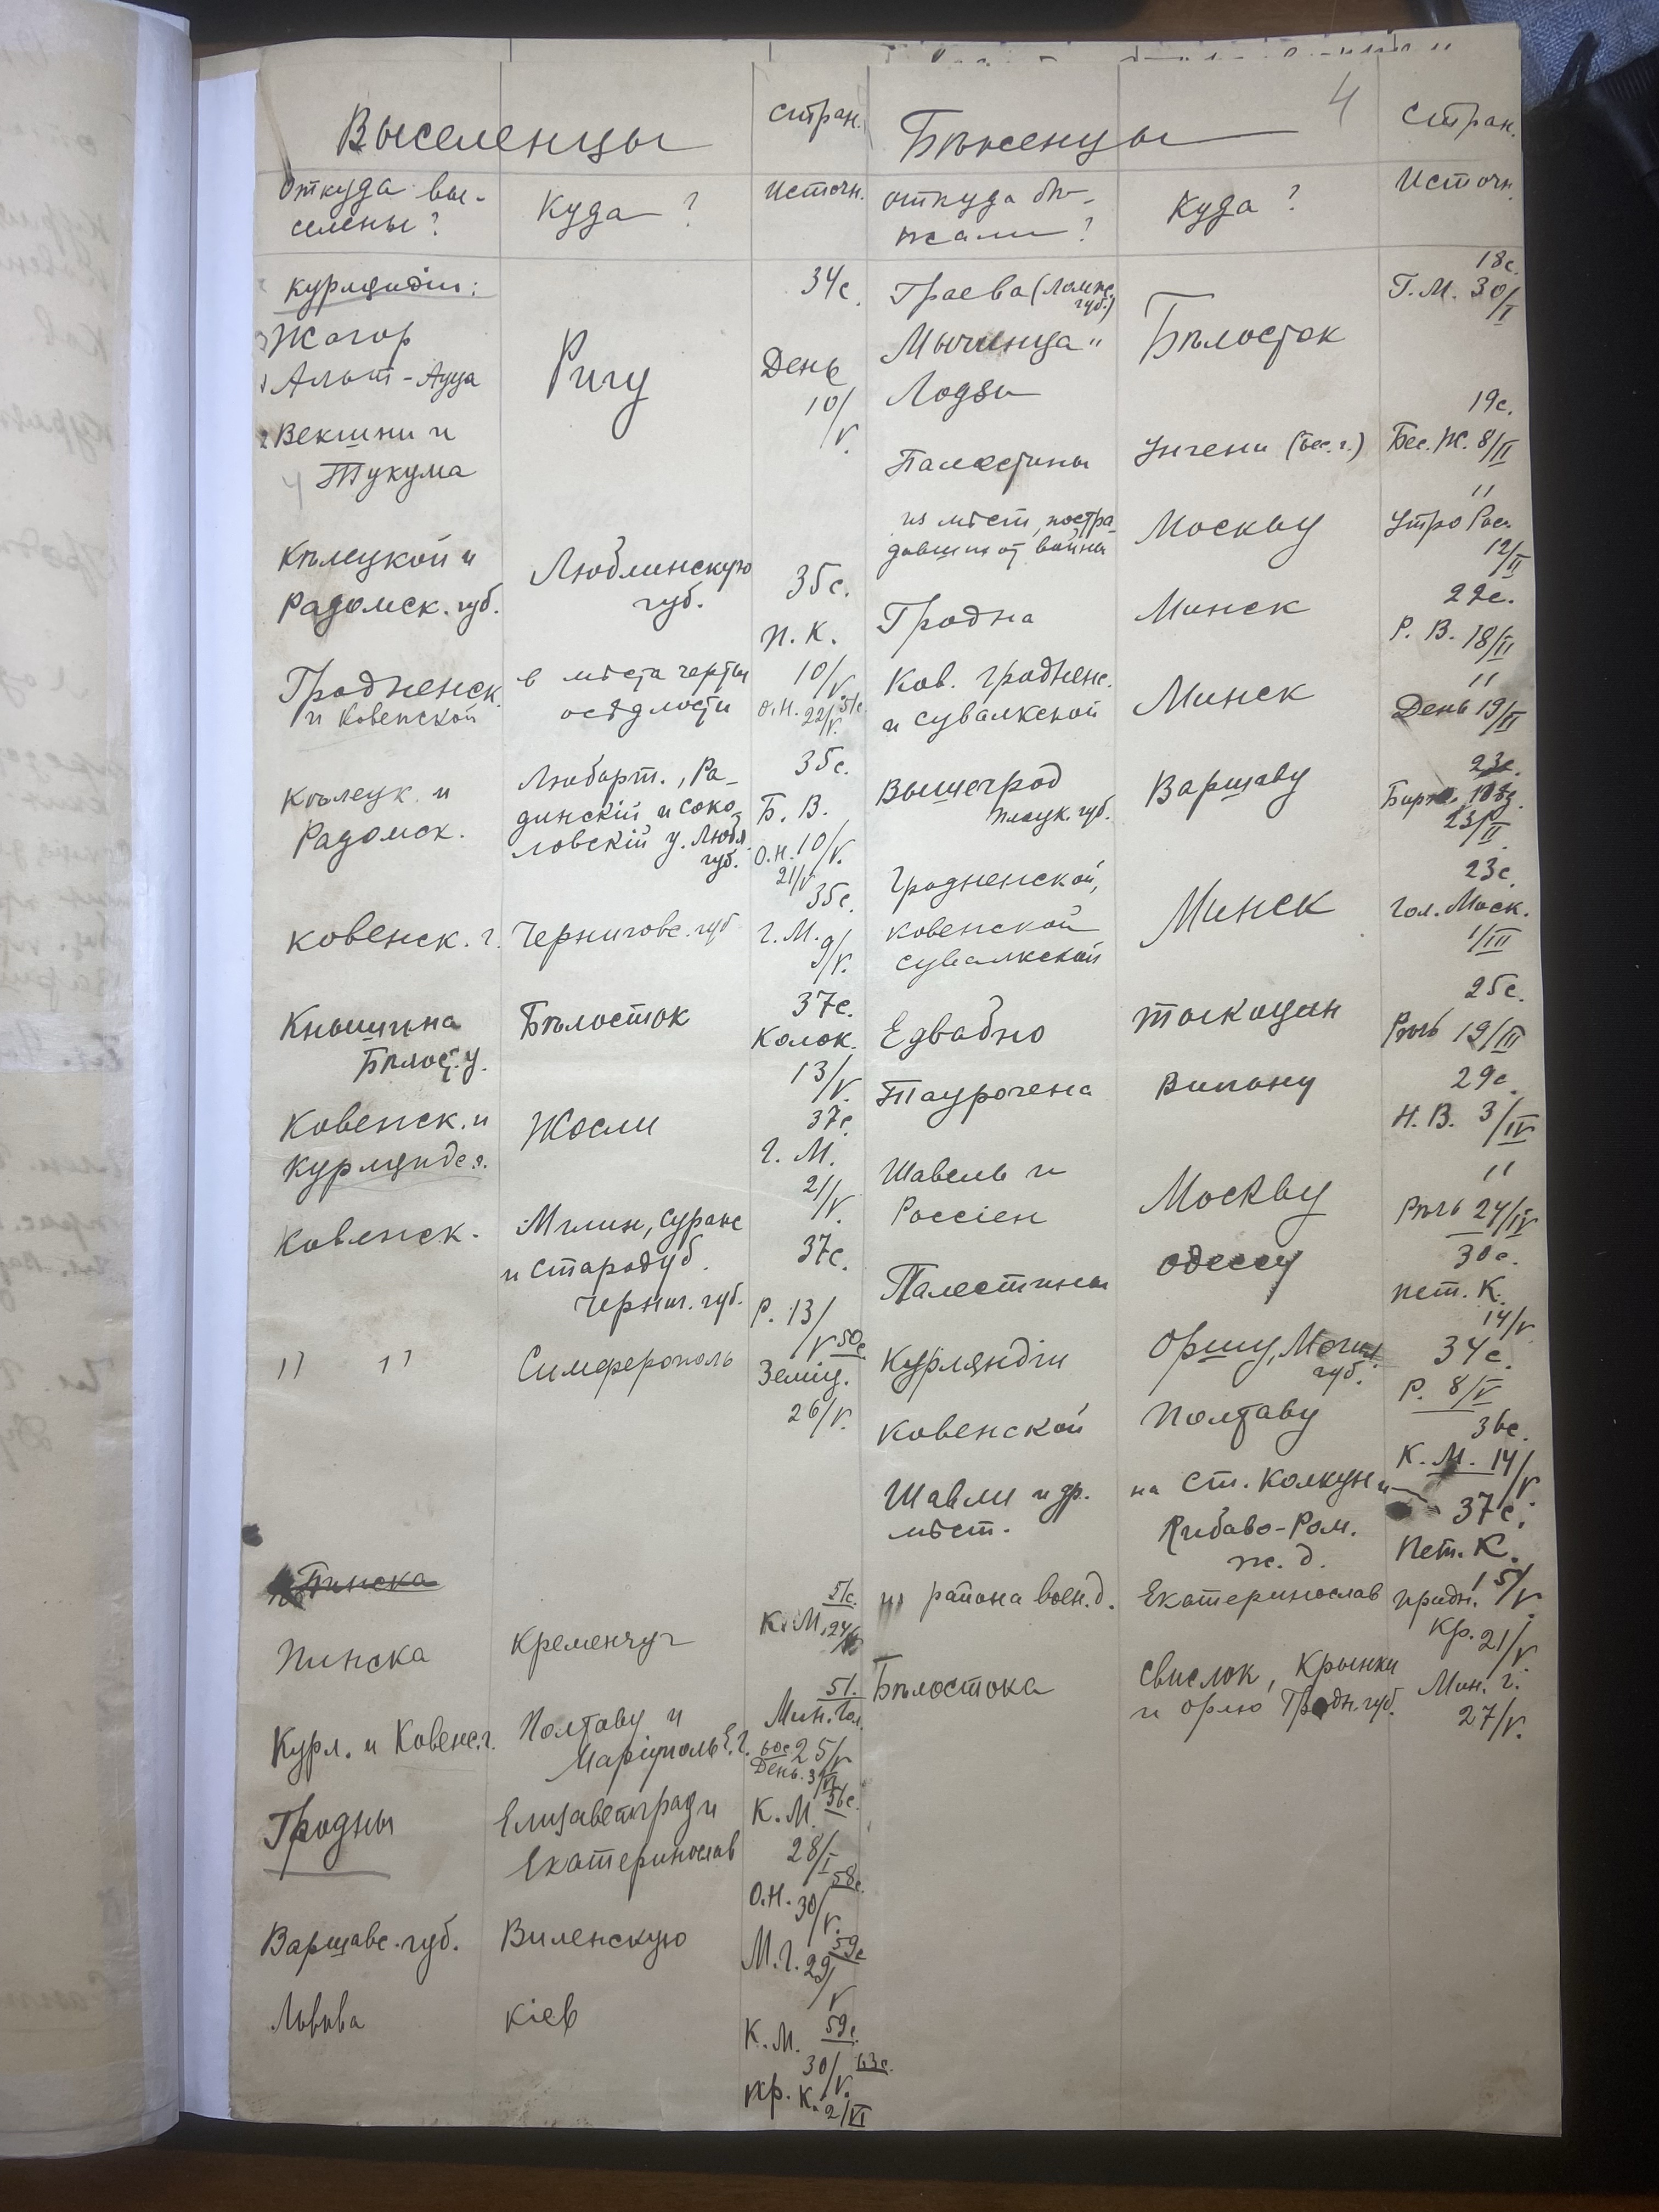 4
Выселенцы
Стран.
Откуда вы-
селены?
Куда?
Источн.
Курляндіи:
34с.
Жагор
Альт-Ауца
Ригу
День
10/V.
Векшни и
Тукума
Кѣлецкой и
Радомск. губ.
Люблинскую
губ.
35с.
П. К.
10/V
Гродненск.
и Ковенской
в мѣста черты
осѣдлости
О.Н. 22/V. 51с.
Кѣлецк. и
Радомск.
Любарт., Ра-
динскій и Соко-
ловскій у. Любл.
губ.
35с.
Б. В.
10/V.
О.Н.
21/V
Ковенск. г.
Черниговс. губ
35с.
Г. М. 9/V.
Кнышина
Бѣлост. у.
Бѣлосток
37с.
Колок.
13/V.
Ковенск. и
Курляндс.
Жосли
37с.
Г. М.
21/V.
Ковенск.
Мглин, Сураж
и Стародуб.
Черниг. губ.
37с.
Р. 13/V
" "
Симферополь
50с
Земщ.
26/V.
Пинска
Пинска
Кременчуг
51с.
К. М. 24/V
Курл. и Ковенс. г.
Полтаву и
Маріуполь Е. г.
51.
Мин. Гол.
25/V
60с
День. 3/VI
Гродны
Елизаветград и
Екатеринослав
К. М. 56с.
28/
58с.
О.Н. 30/V.
Варшавс. губ.
Виленскую
59с
М. Г. 29/V
Львова
Кіев
К. М. 59с.
30/V.
63с.
Пр. К. 2/VI
Бѣженцы
Стран.
откуда бѣ-
жали?
Куда?
Источн.
Граева (Ломж.
губ.)
18с.
Г. М. 30/I
Мышинца "
Бѣлосток
Лодзи
Палестины
Унгени (Бес. г.)
19с.
Бес. Ж. 8/II
из мѣст, постра-
давших от войны
Москву
"
Утро Рос.
12/II
Гродна
Минск
22с.
Р. В. 18/II
Ков. Гродненс.
и Сувалкской
Минск
"
День 19/II
Вышегрод
Плоцк. губ.
Варшаву
23с.
23/II
Гродненской,
Ковенской
Сувалкской
Минск
23с.
Гол. Моск.
1/III
Едвабно
Тыкоцин
25с.
Рѣчь 19/III
Таурогена
Вильну
29с.
Н. В. 3/IV
Шавель и
Россіен
Москву
"
Рѣчь 24/IV
Палестины
Одессу
30с.
Пет. К.
14/V
Курляндіи
Оршу, Могил.
губ.
34с.
Р. 8/V
Ковенской
Полтаву
36с.
К. М. 14/V.
Шавли и др.
мѣст.
на ст. Колкуны
Либаво-Ром.
ж. д.
37с.
Пет. К.
15/V
из района воен. д.
Екатеринослав
Придн.
Кр. 21/V
Бѣлостока
Свислок, Крынки
и Орлю Гродн. губ.
Мин. Г.
27/V.